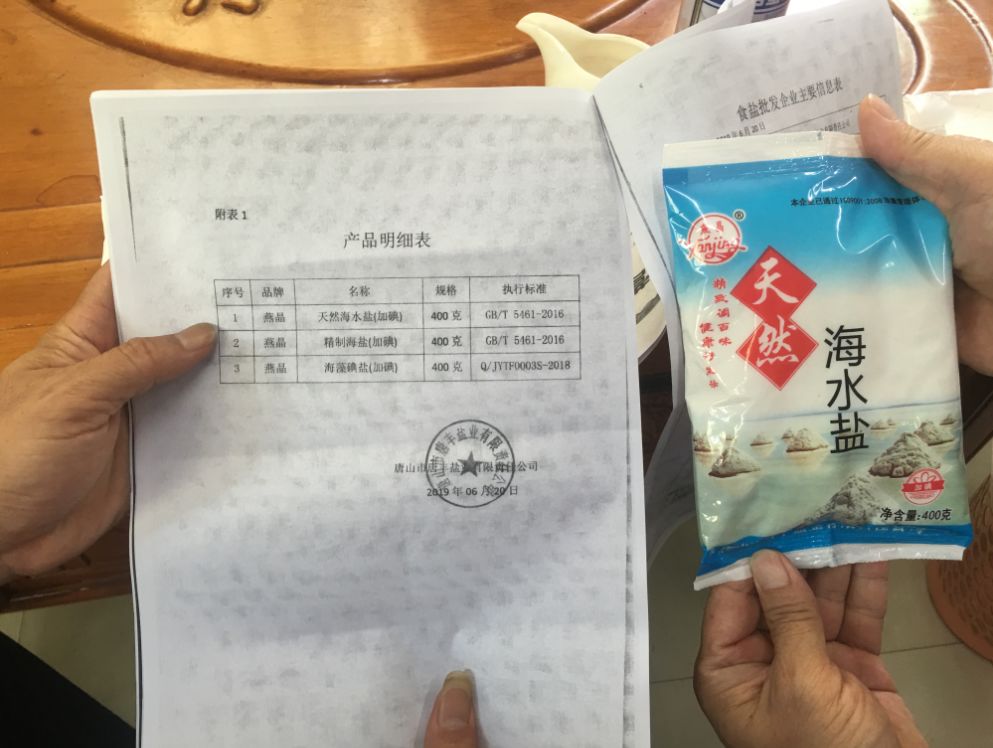 附表 1
产品明细表
序号 品牌 名称 规格 执行标准
1 燕晶 天然海水盐(加碘) 400 克 GB/T 5461-2016
2 燕晶 精制海盐(加碘) 400 克 GB/T 5461-2016
3 燕晶 海藻碘盐(加碘) 400 克 Q/JYTF0003S-2018
唐山市唐丰盐业有限责任公司
2019 年 06 月 20 日
食盐批发企业主要信息表
本企业已通过ISO9001:2008
®
天然
海水盐
加碘
净含量:400克